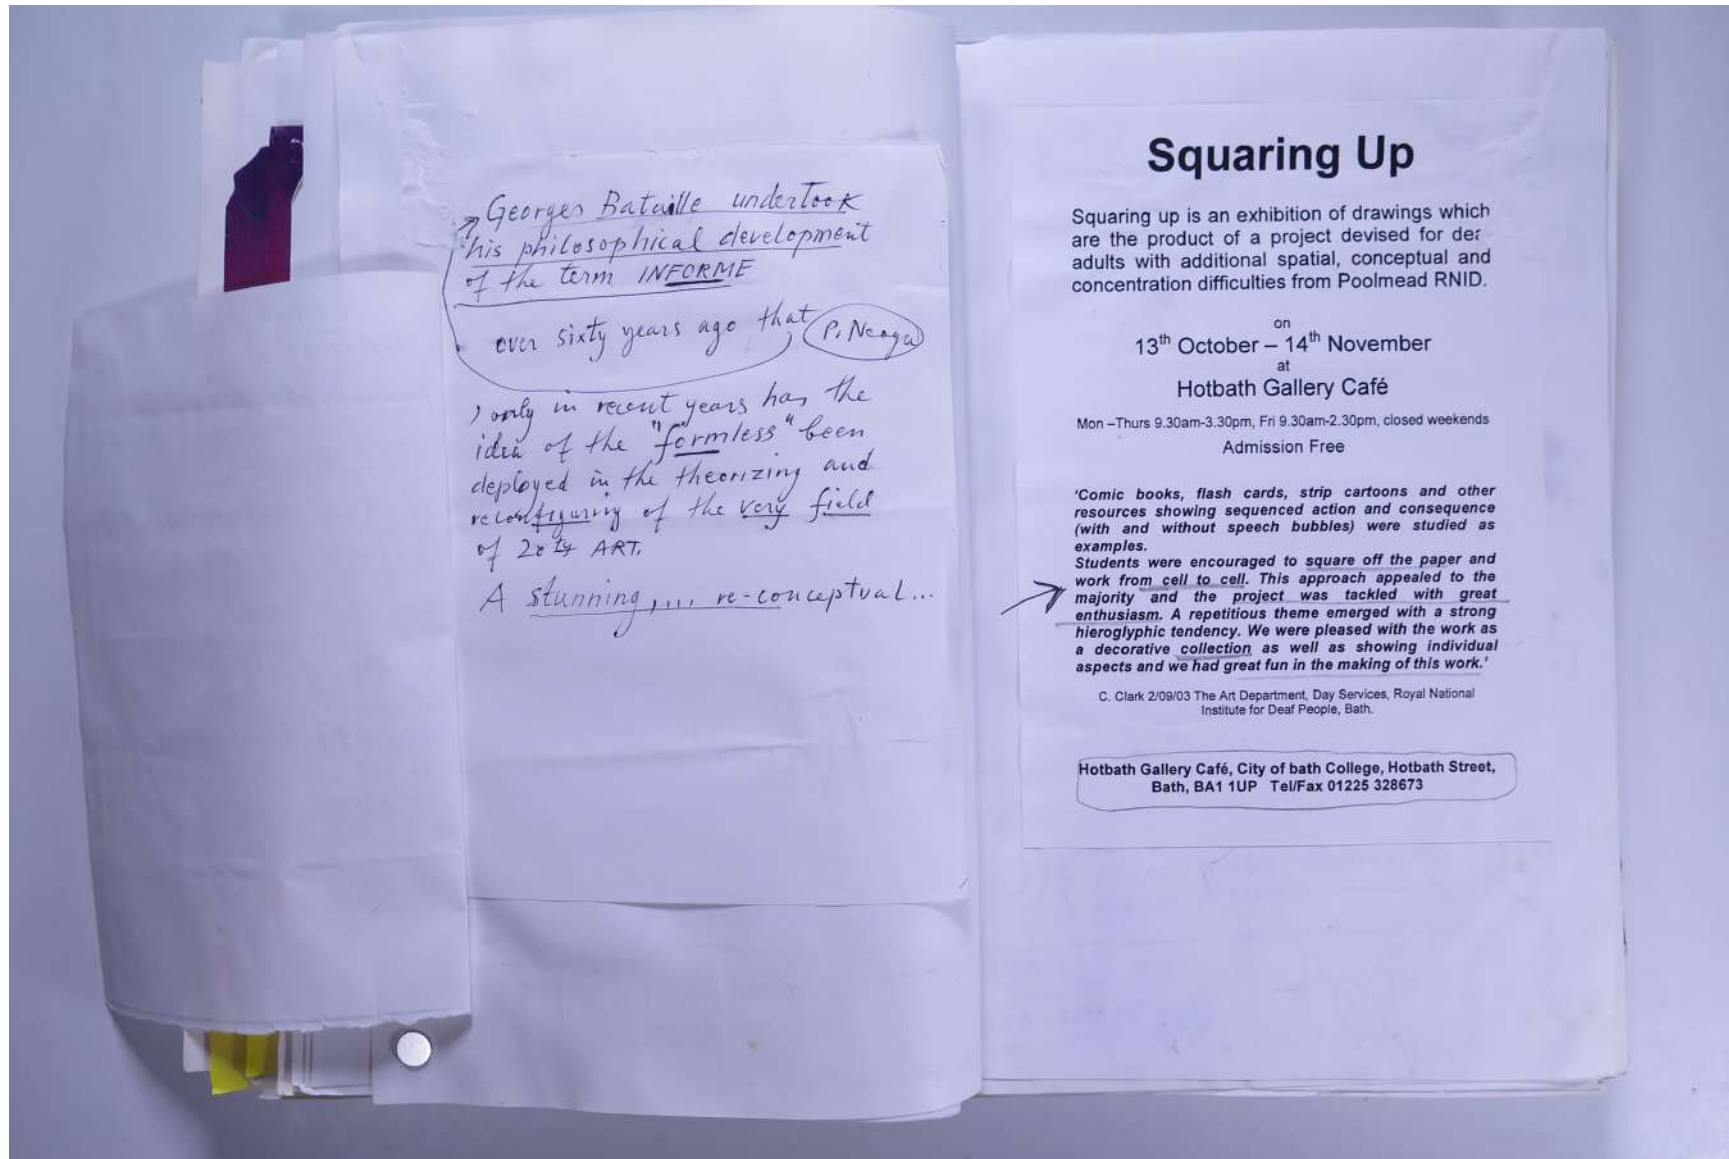 Georges Bataille undertook
his philosophical development
of the term INFORME
over sixty years ago that P. Neagu
only in recent years has the
idea of the "formless" been
deployed in the theorizing and
reconfiguring of the very field
of 20ty ART.
A stunning,... re-conceptual...
Squaring Up
Squaring up is an exhibition of drawings which
are the product of a project devised for
adults with additional spatial, conceptual and
concentration difficulties from Poolmead RNID.
on
13th October – 14th November
at
Hotbath Gallery Café
Mon –Thurs 9.30am-3.30pm, Fri 9.30am-2.30pm, closed weekends
Admission Free
'Comic books, flash cards, strip cartoons and other
resources showing sequenced action and consequence
(with and without speech bubbles) were studied as
examples.
Students were encouraged to square off the paper and
work from cell to cell. This approach appealed to the
majority and the project was tackled with great
enthusiasm. A repetitious theme emerged with a strong
hieroglyphic tendency. We were pleased with the work as
a decorative collection as well as showing individual
aspects and we had great fun in the making of this work.'
C. Clark 2/09/03 The Art Department, Day Services, Royal National
Institute for Deaf People, Bath.
Hotbath Gallery Café, City of bath College, Hotbath Street,
Bath, BA1 1UP Tel/Fax 01225 328673